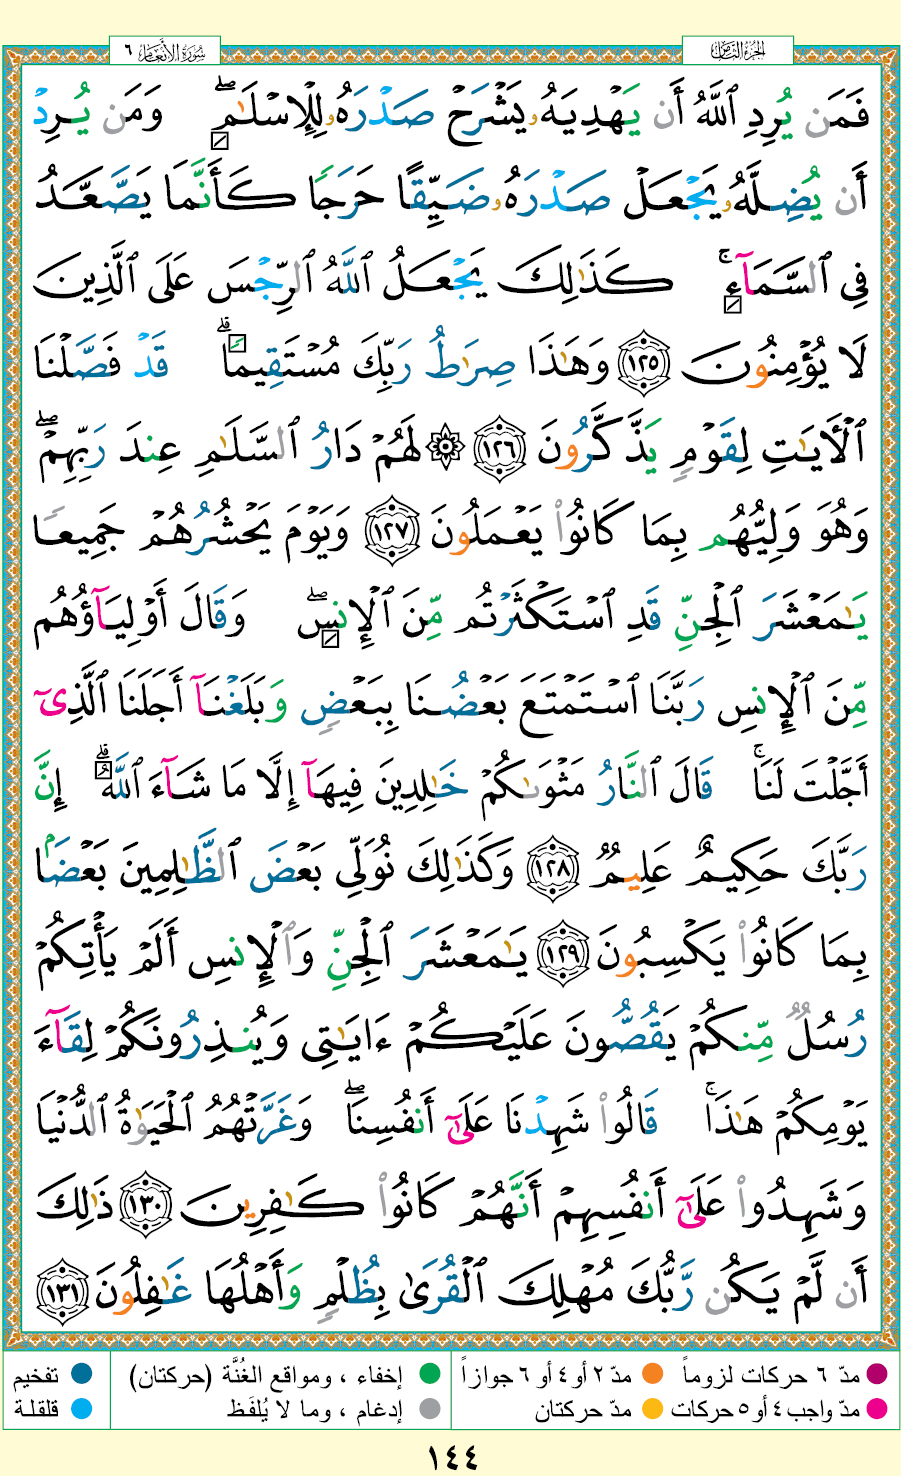 سُورَةُ الأَنْعَامِ ٦
الجزء الثامن
فَمَن يُرِدِ ٱللَّهُ أَن يَهْدِيَهُۥ يَشْرَحْ صَدْرَهُۥ لِلْإِسْلَـٰمِ ۖ وَمَن يُرِدْ
أَن يُضِلَّهُۥ يَجْعَلْ صَدْرَهُۥ ضَيِّقًا حَرَجًا كَأَنَّمَا يَصَّعَّدُ
فِى ٱلسَّمَآءِ ۚ كَذَٰلِكَ يَجْعَلُ ٱللَّهُ ٱلرِّجْسَ عَلَى ٱلَّذِينَ
لَا يُؤْمِنُونَ ١٢٥ وَهَـٰذَا صِرَٰطُ رَبِّكَ مُسْتَقِيمًا ۗ قَدْ فَصَّلْنَا
ٱلْـَٔايَـٰتِ لِقَوْمٍ يَذَّكَّرُونَ ١٢٦ ۞ لَهُمْ دَارُ ٱلسَّلَـٰمِ عِندَ رَبِّهِمْ ۖ
وَهُوَ وَلِيُّهُم بِمَا كَانُوا۟ يَعْمَلُونَ ١٢٧ وَيَوْمَ يَحْشُرُهُمْ جَمِيعًا
يَـٰمَعْشَرَ ٱلْجِنِّ قَدِ ٱسْتَكْثَرْتُم مِّنَ ٱلْإِنسِ ۖ وَقَالَ أَوْلِيَآؤُهُم
مِّنَ ٱلْإِنسِ رَبَّنَا ٱسْتَمْتَعَ بَعْضُنَا بِبَعْضٍ وَبَلَغْنَآ أَجَلَنَا ٱلَّذِىٓ
أَجَّلْتَ لَنَا ۚ قَالَ ٱلنَّارُ مَثْوَىٰكُمْ خَـٰلِدِينَ فِيهَآ إِلَّا مَا شَآءَ ٱللَّهُ ۗ إِنَّ
رَبَّكَ حَكِيمٌ عَلِيمٌ ١٢٨ وَكَذَٰلِكَ نُوَلِّى بَعْضَ ٱلظَّـٰلِمِينَ بَعْضًۢا
بِمَا كَانُوا۟ يَكْسِبُونَ ١٢٩ يَـٰمَعْشَرَ ٱلْجِنِّ وَٱلْإِنسِ أَلَمْ يَأْتِكُمْ
رُسُلٌ مِّنكُمْ يَقُصُّونَ عَلَيْكُمْ ءَايَـٰتِى وَيُنذِرُونَكُمْ لِقَآءَ
يَوْمِكُمْ هَـٰذَا ۚ قَالُوا۟ شَهِدْنَا عَلَىٰٓ أَنفُسِنَا ۖ وَغَرَّتْهُمُ ٱلْحَيَوٰةُ ٱلدُّنْيَا
وَشَهِدُوا۟ عَلَىٰٓ أَنفُسِهِمْ أَنَّهُمْ كَانُوا۟ كَـٰفِرِينَ ١٣٠ ذَٰلِكَ
أَن لَّمْ يَكُن رَّبُّكَ مُهْلِكَ ٱلْقُرَىٰ بِظُلْمٍ وَأَهْلُهَا غَـٰفِلُونَ ١٣١
مدّ ٦ حركات لزوماً مدّ ٢ أو ٤ أو ٦ جوازاً إخفاء ، ومواقع الغُنَّة (حركتان) تفخيم
مدّ واجب ٤ أو ٥ حركات مدّ حركتان إدغام ، وما لا يُلفَظ قلقلة
١٤٤